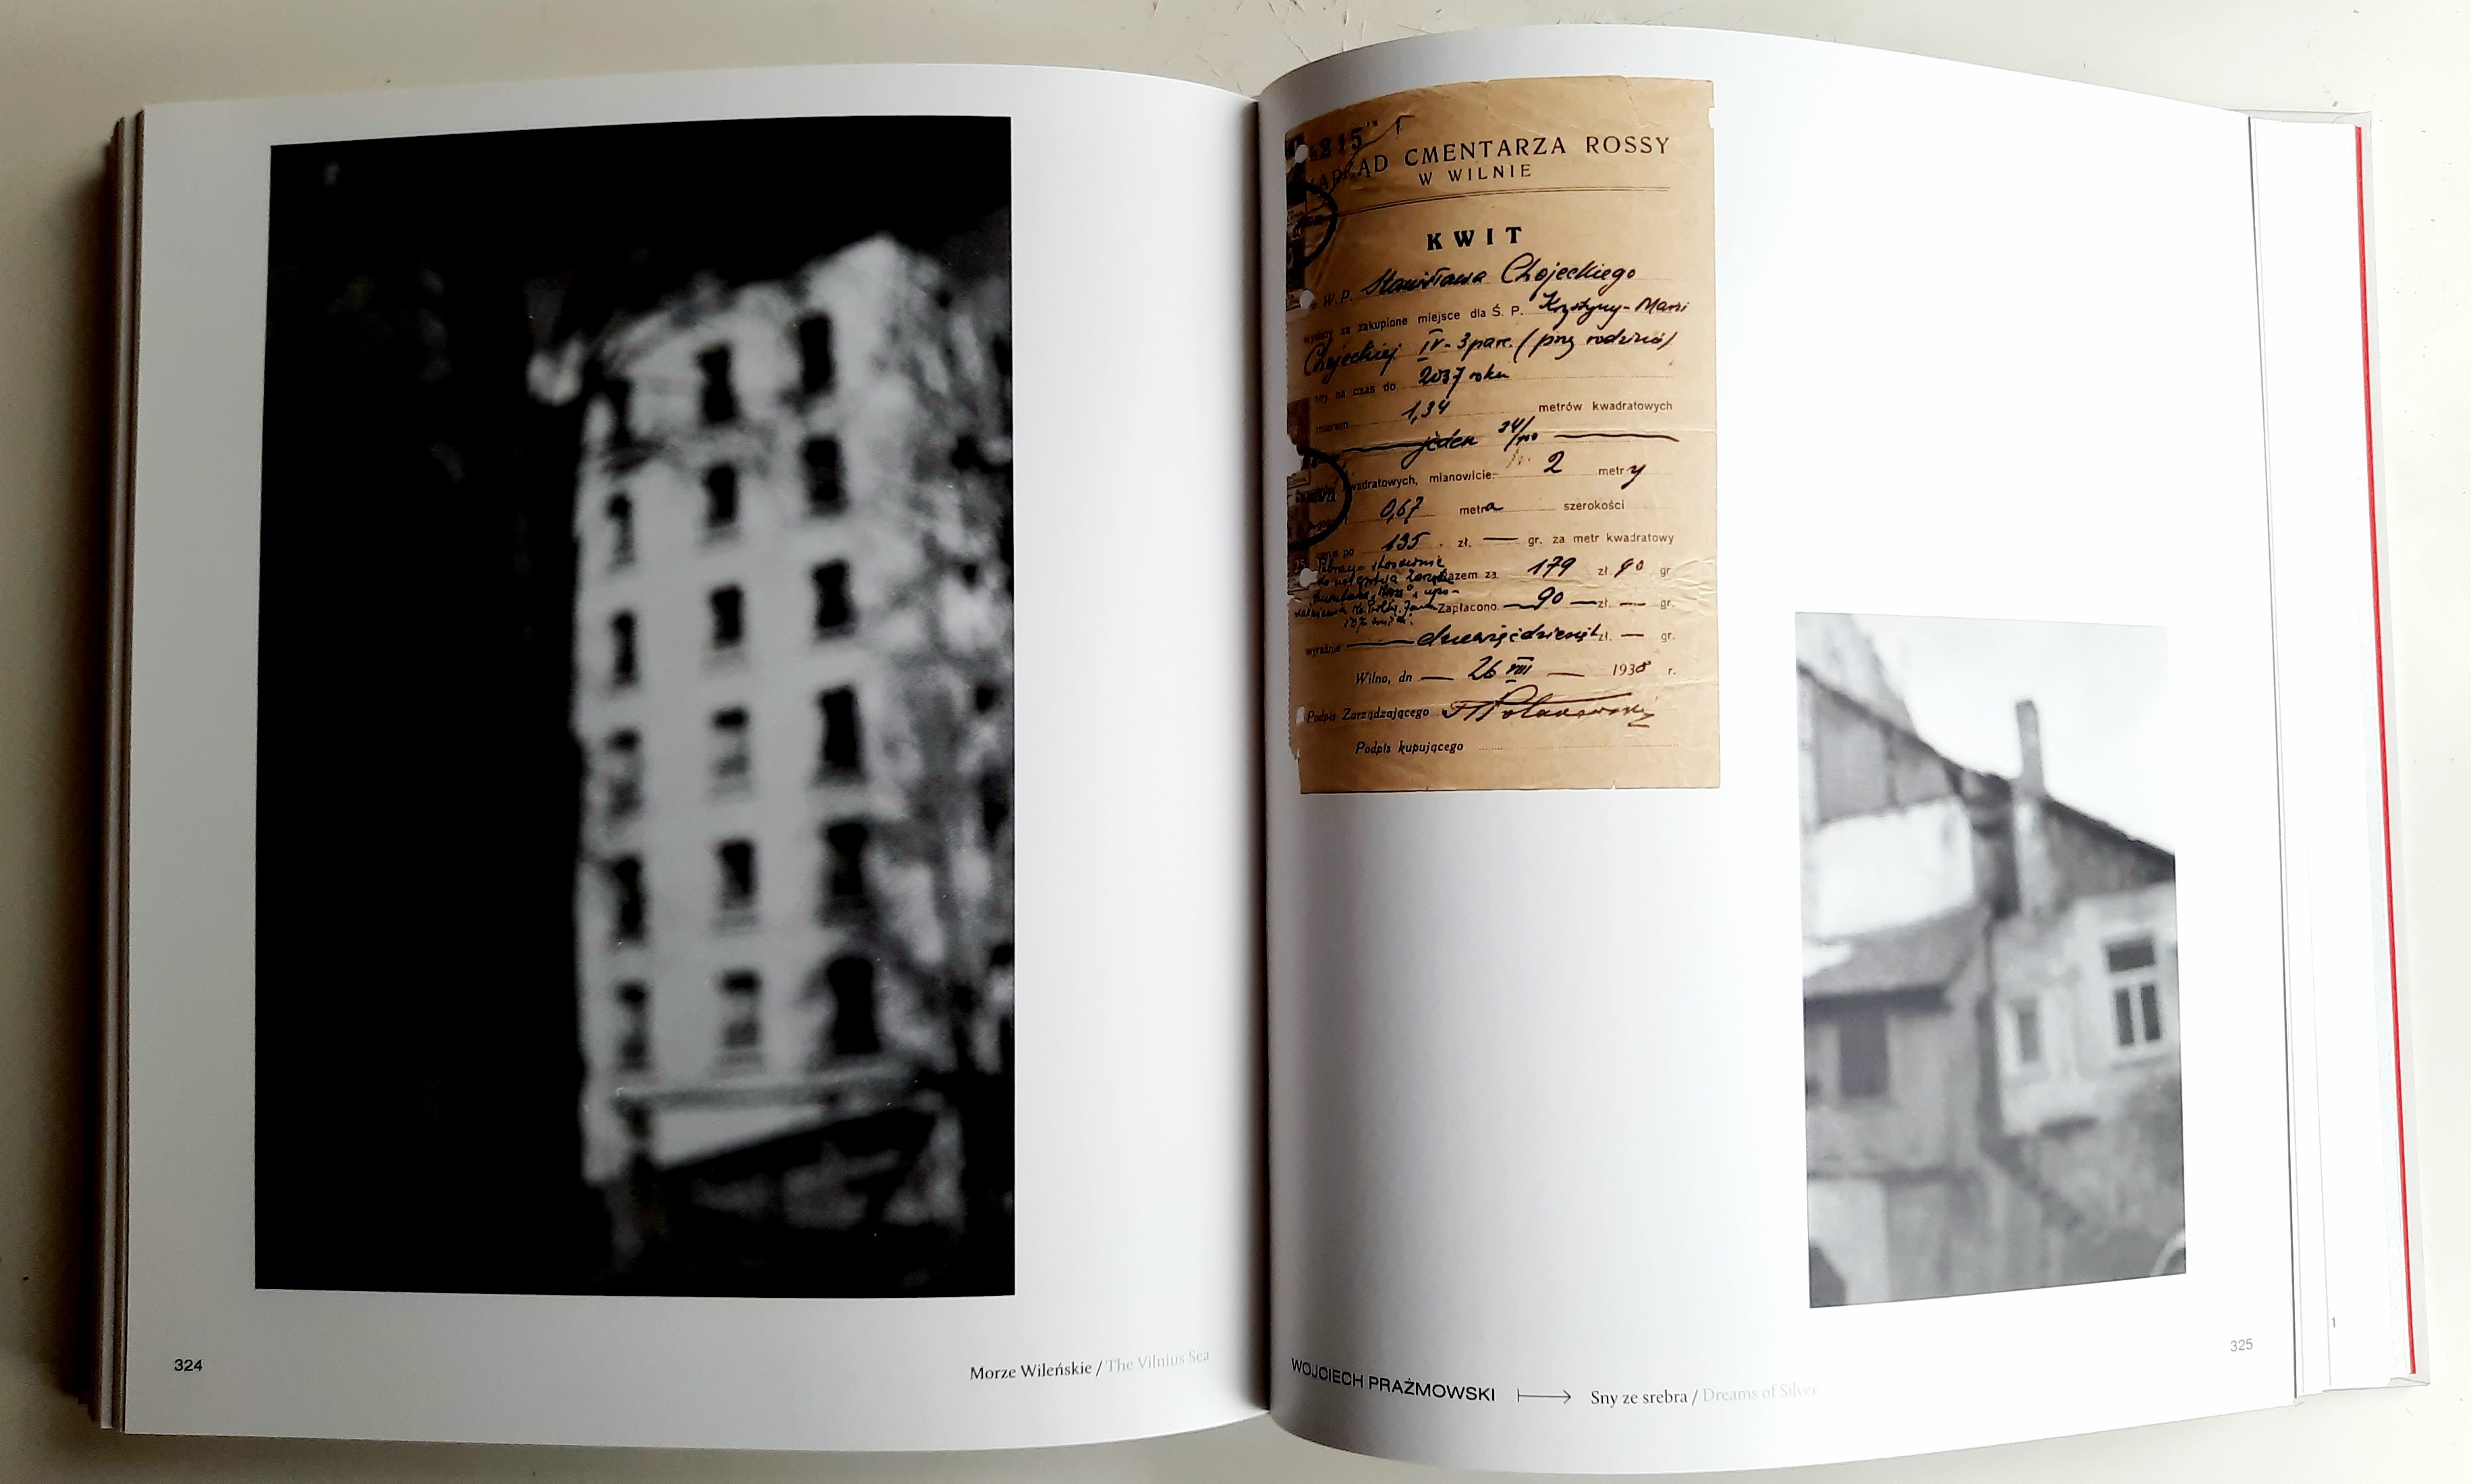 324
Morze Wileńskie / The Vilnius Sea
215
ZARZĄD CMENTARZA ROSSY
W WILNIE
KWIT
W. P. Stanisława Chojeckiego
wydany za zakupione miejsce dla Ś. P. Krystyny-Marii
Chojeckiej IV-3 parc. (przy rodzicach)
na czas do 2037 roku
1,34 metrów kwadratowych
jeden 34/100
kwadratowych, mianowicie: 2 metry
0,67 metra szerokości
cena po 135 zł. — gr. za metr kwadratowy
Razem za 179 zł 90 gr
Zapłacono — 90 — zł. — gr.
wyraźnie — dziewięćdziesiąt zł. — gr.
Wilno, dn — 26 VIII — 1938 r.
Podpis Zarządzającego
Podpis kupującego
325
WOJCIECH PRAŻMOWSKI Sny ze srebra / Dreams of Silver
1